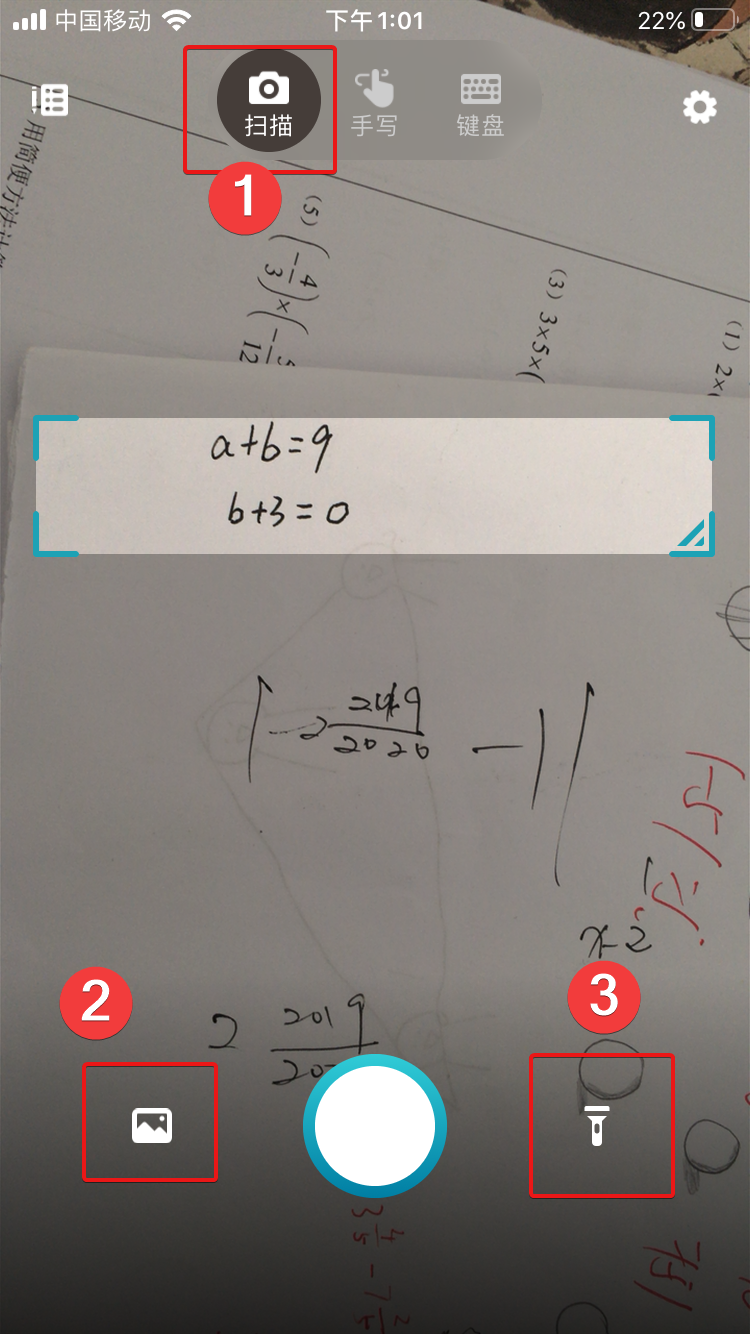 中国移动 下午1:01 22%
扫描 手写 键盘
1
用简便方法计算
(5) (-4/3)×(-5/12
(3) 3×5×(
(1) 2×(
a+b=9
b+3=0
2019
2020
-1|
x-2
2
3
2 2019
20
3 4/5 - 7 2/5